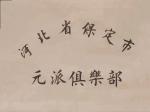 河北省保定市
元派俱樂部